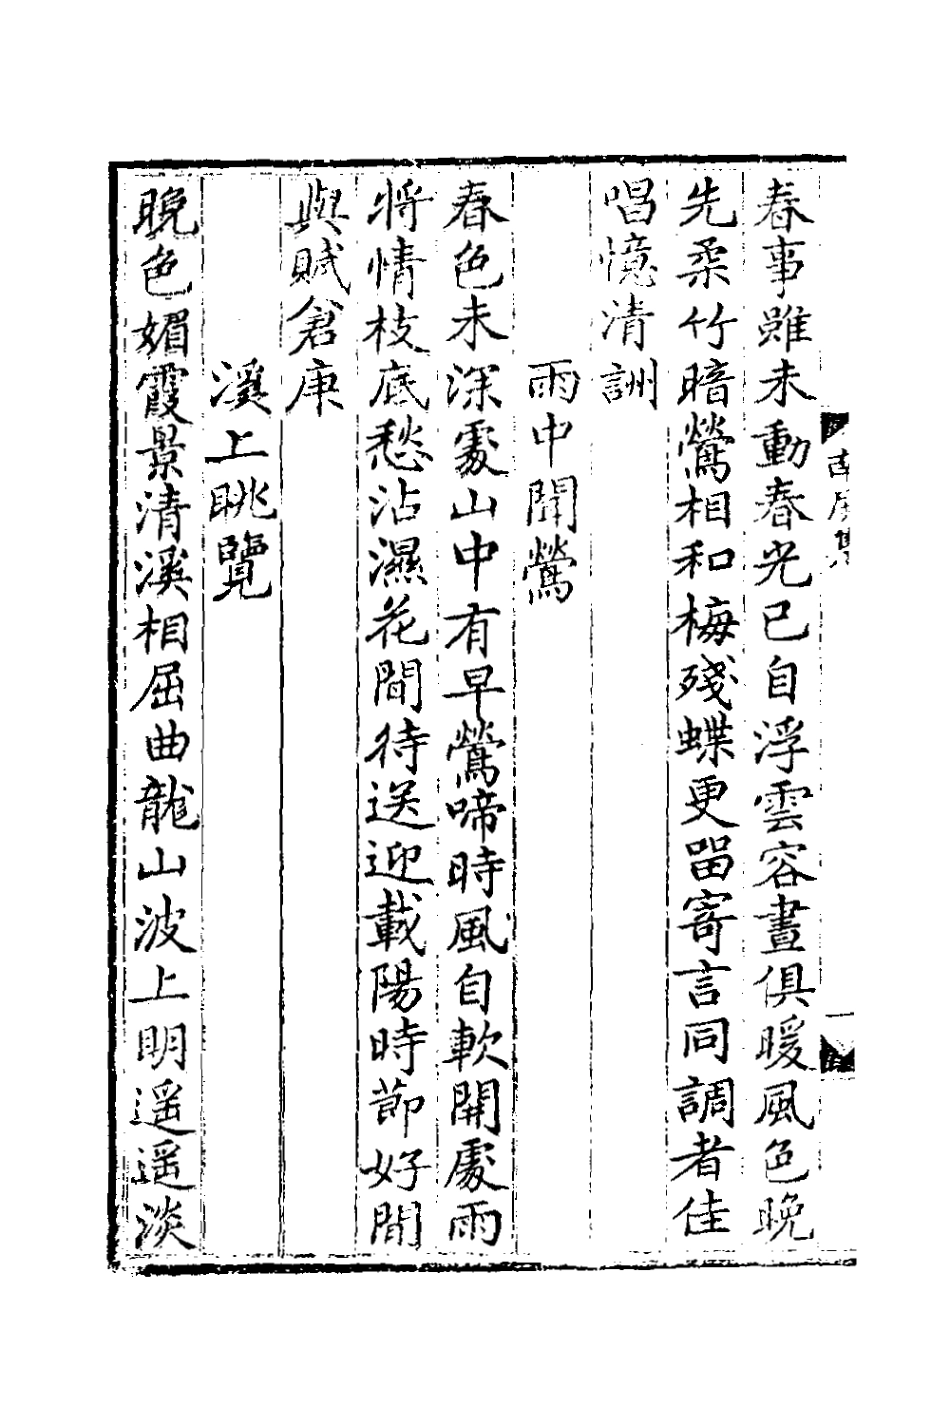 春事雖未動春光已自浮雲容晝俱暖風色晚
先柔竹暗鶯相和梅殘蝶更留寄言同調者佳
唱憶清詶
雨中聞鶯
春色未深處山中有早鶯啼時風自軟開處雨
將情枝底愁沾濕花間待送迎載陽時節好閒
與賦倉庚
溪上眺覽
晚色媚霞景清溪相屈曲龍山波上明遥遥淡